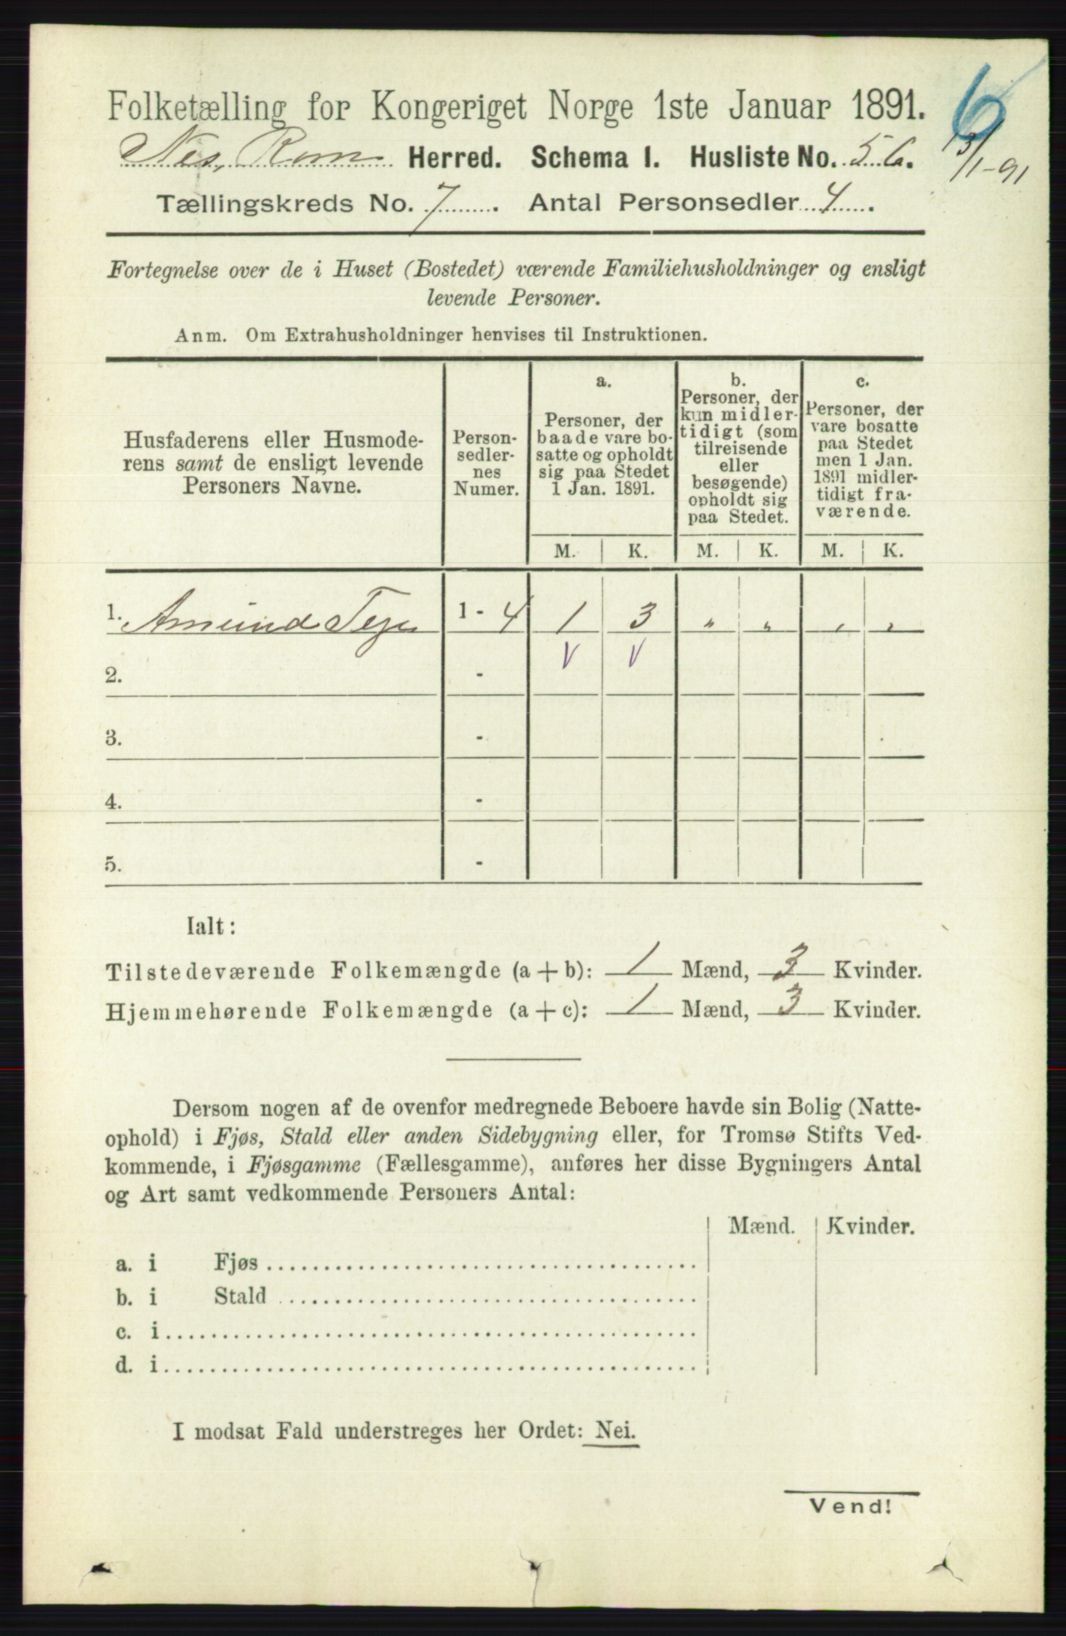 Folketælling for Kongeriget Norge 1ste Januar 1891.
6
13/1-91
Nes, Rom Herred. Schema 1. Husliste No. 56.
Tællingskreds No. 7. Antal Personsedler 4.
Fortegnelse over de i Huset (Bostedet) værende Familiehusholdninger og ensligt
levende Personer.
Anm. Om Extrahusholdninger henvises til Instruktionen.
Husfaderens eller Husmode-
rens samt de ensligt levende
Personers Navne.
Person-
sedler-
nes
Numer.
a.
Personer, der
baade vare bo-
satte og opholdt
sig paa Stedet
1 Jan. 1891.
b.
Personer, der
kun midler-
tidigt (som
tilreisende
eller
besøgende)
opholdt sig
paa Stedet.
c.
Personer, der
vare bosatte
paa Stedet
men 1 Jan.
1891 midler-
tidigt fra-
værende.
M. K. M. K. M. K.
1. Amund 1 - 4 1 3 " " " "
V V
2. -
3. -
4. -
5. -
Ialt:
Tilstedeværende Folkemængde (a + b): 1 Mænd, 3 Kvinder.
Hjemmehørende Folkemængde (a + c): 1 Mænd, 3 Kvinder.
Dersom nogen af de ovenfor medregnede Beboere havde sin Bolig (Natte-
ophold) i Fjøs, Stald eller anden Sidebygning eller, for Tromsø Stifts Ved-
kommende, i Fjøsgamme (Fællesgamme), anføres her disse Bygningers Antal
og Art samt vedkommende Personers Antal:
Mænd. Kvinder.
a. i Fjøs
b. i Stald
c. i
d. i
I modsat Fald understreges her Ordet: Nei.
Vend!